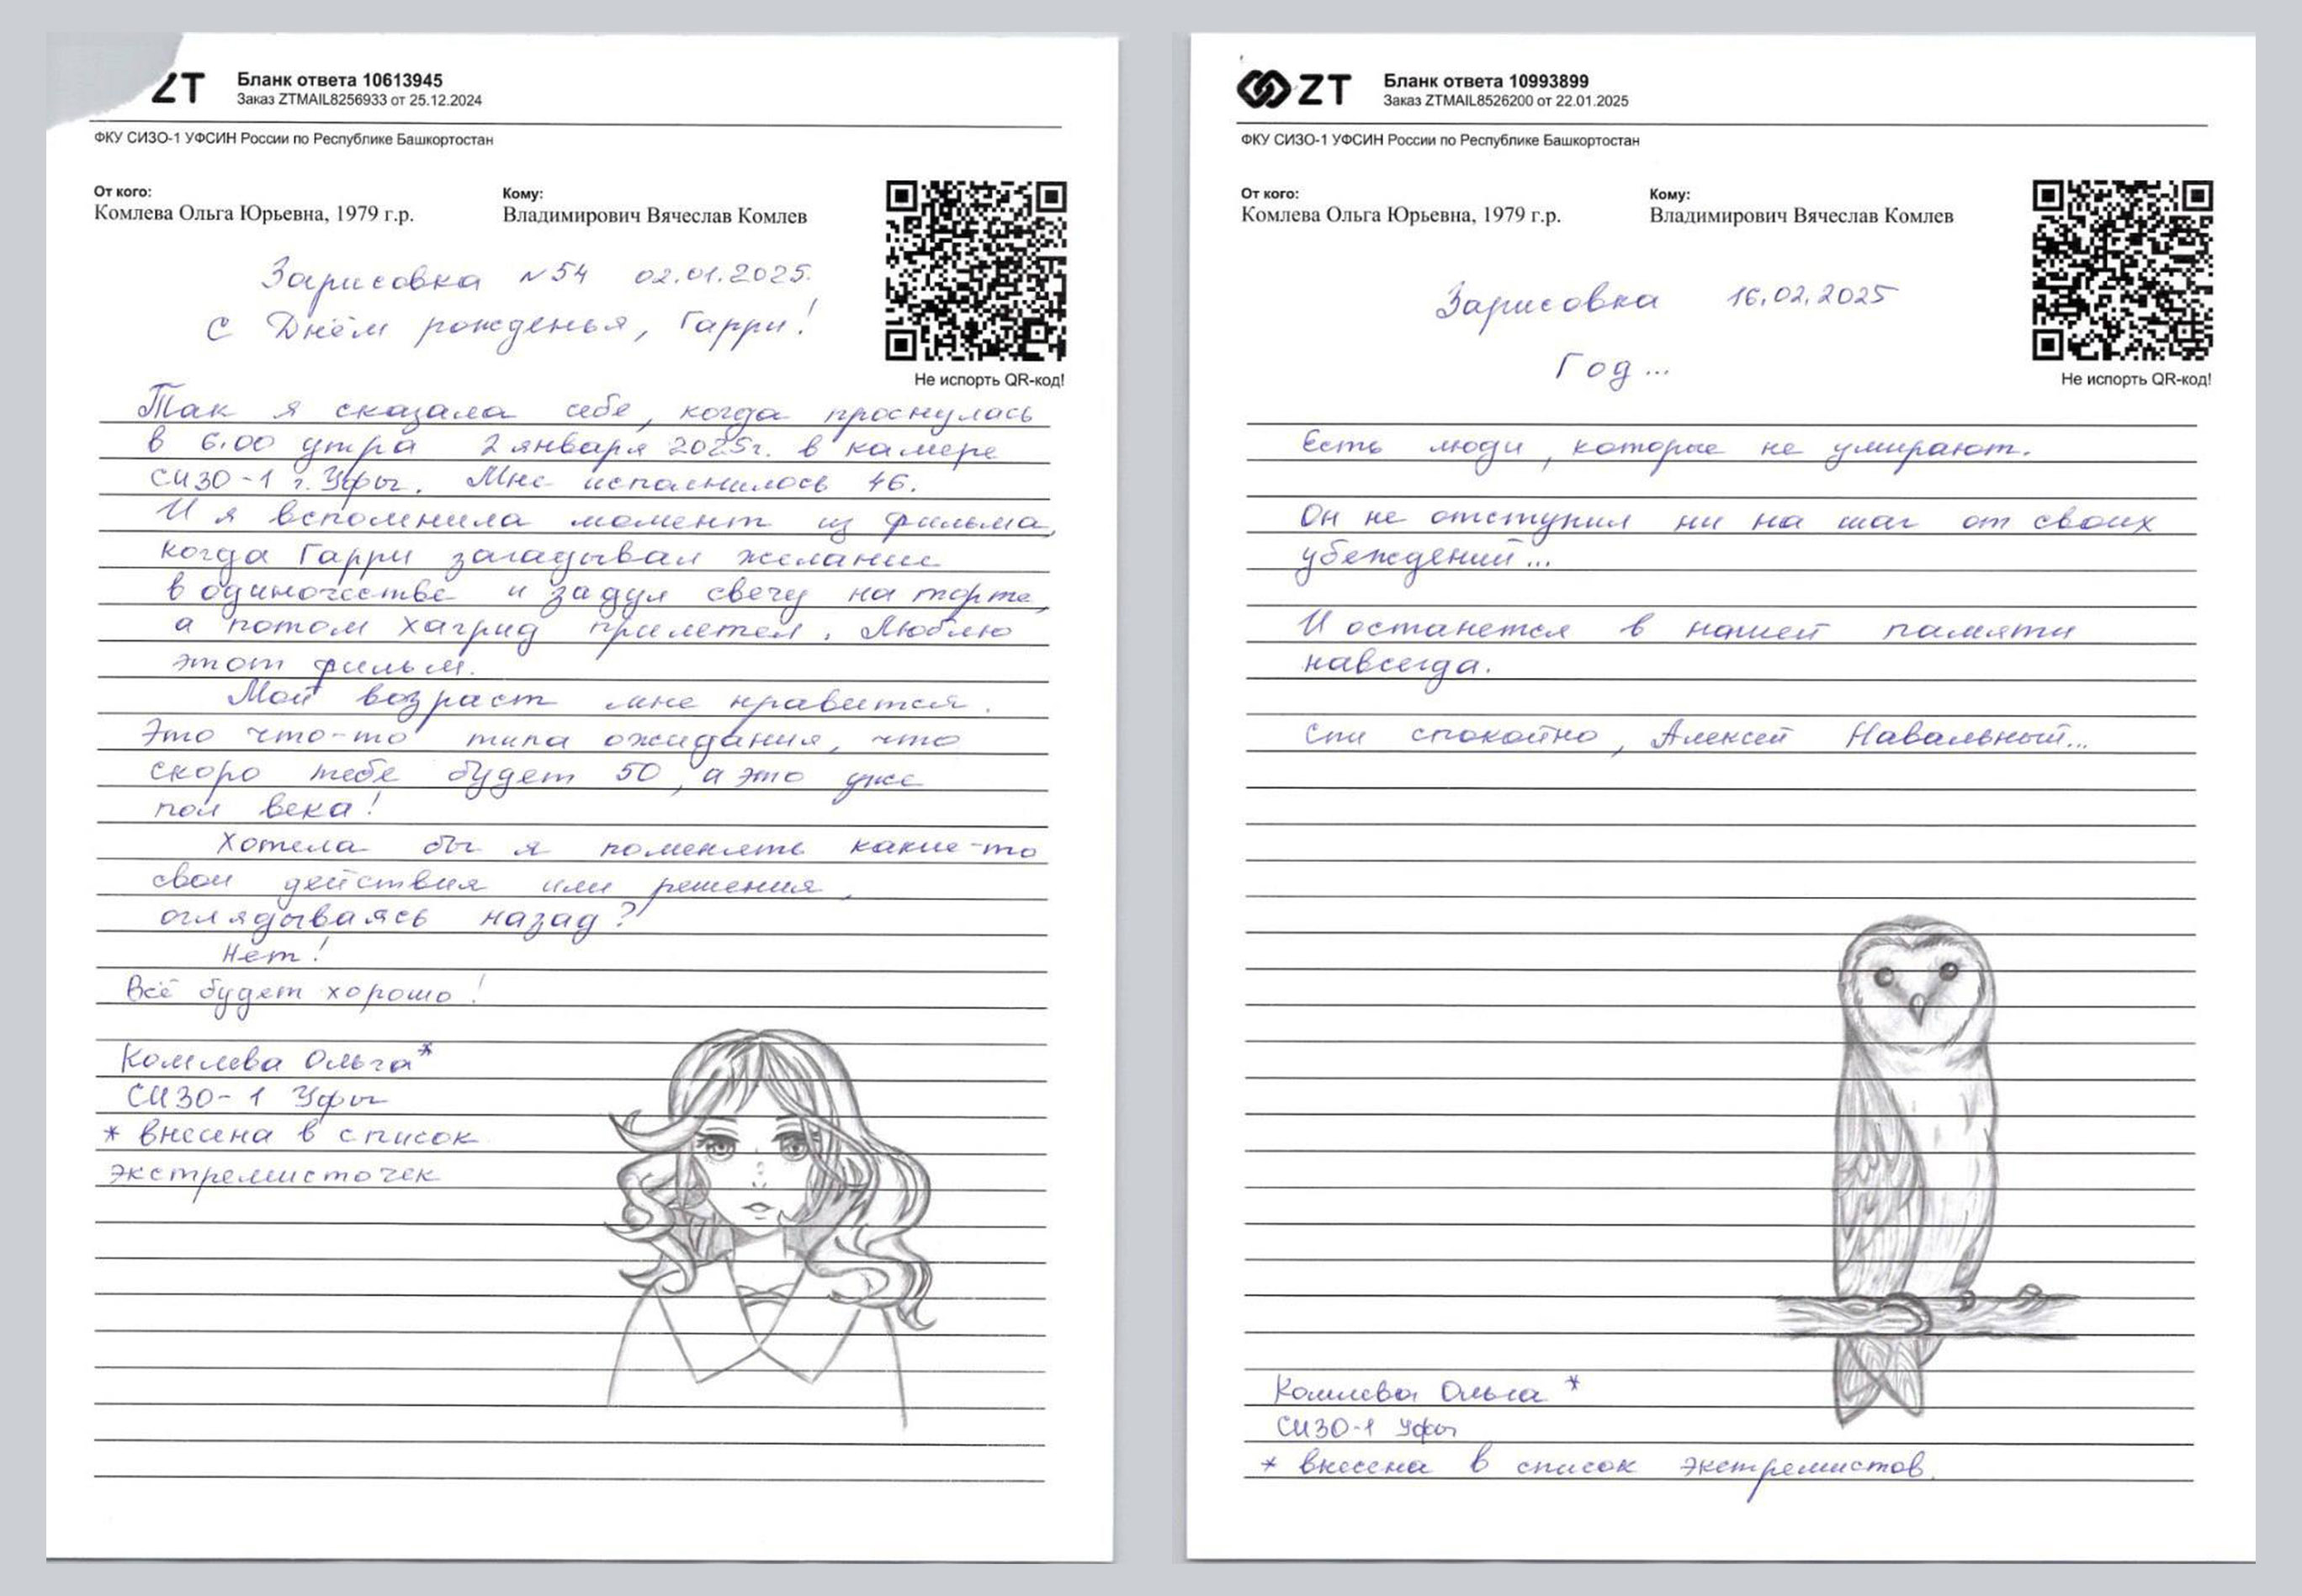 ZT
Бланк ответа 10613945
Заказ ZTMAIL8256933 от 25.12.2024
ФКУ СИЗО-1 УФСИН России по Республике Башкортостан
От кого:
Комлева Ольга Юрьевна, 1979 г.р.
Кому:
Владимирович Вячеслав Комлев
Не испорть QR-код!
Зарисовка №54 02.01.2025.
С Днём рожденья, Гарри!
Так я сказала себе, когда проснулась
в 6.00 утра 2 января 2025г. в камере
СИЗО-1 г. Уфы. Мне исполнилось 46.
И я вспомнила момент из фильма,
когда Гарри загадывал желание
в одиночестве и задул свечу на торте,
а потом Хагрид прилетел. Люблю
этот фильм.
Мой возраст мне нравится.
Это что-то типа ожидания, что
скоро тебе будет 50, а это уже
пол века!
Хотела бы я поменять какие-то
свои действия или решения,
оглядываясь назад?
Нет!
Всё будет хорошо!
Комлева Ольга*
СИЗО-1 Уфы
* внесена в список
экстремисточек
ZT
Бланк ответа 10993899
Заказ ZTMAIL8526200 от 22.01.2025
ФКУ СИЗО-1 УФСИН России по Республике Башкортостан
От кого:
Комлева Ольга Юрьевна, 1979 г.р.
Кому:
Владимирович Вячеслав Комлев
Не испорть QR-код!
Зарисовка 16.02.2025
Год...
Есть люди, которые не умирают.
Он не отступил ни на шаг от своих
убеждений...
И останется в нашей памяти
навсегда.
Спи спокойно, Алексей Навальный...
Комлева Ольга *
СИЗО-1 Уфы
* внесена в список экстремистов.